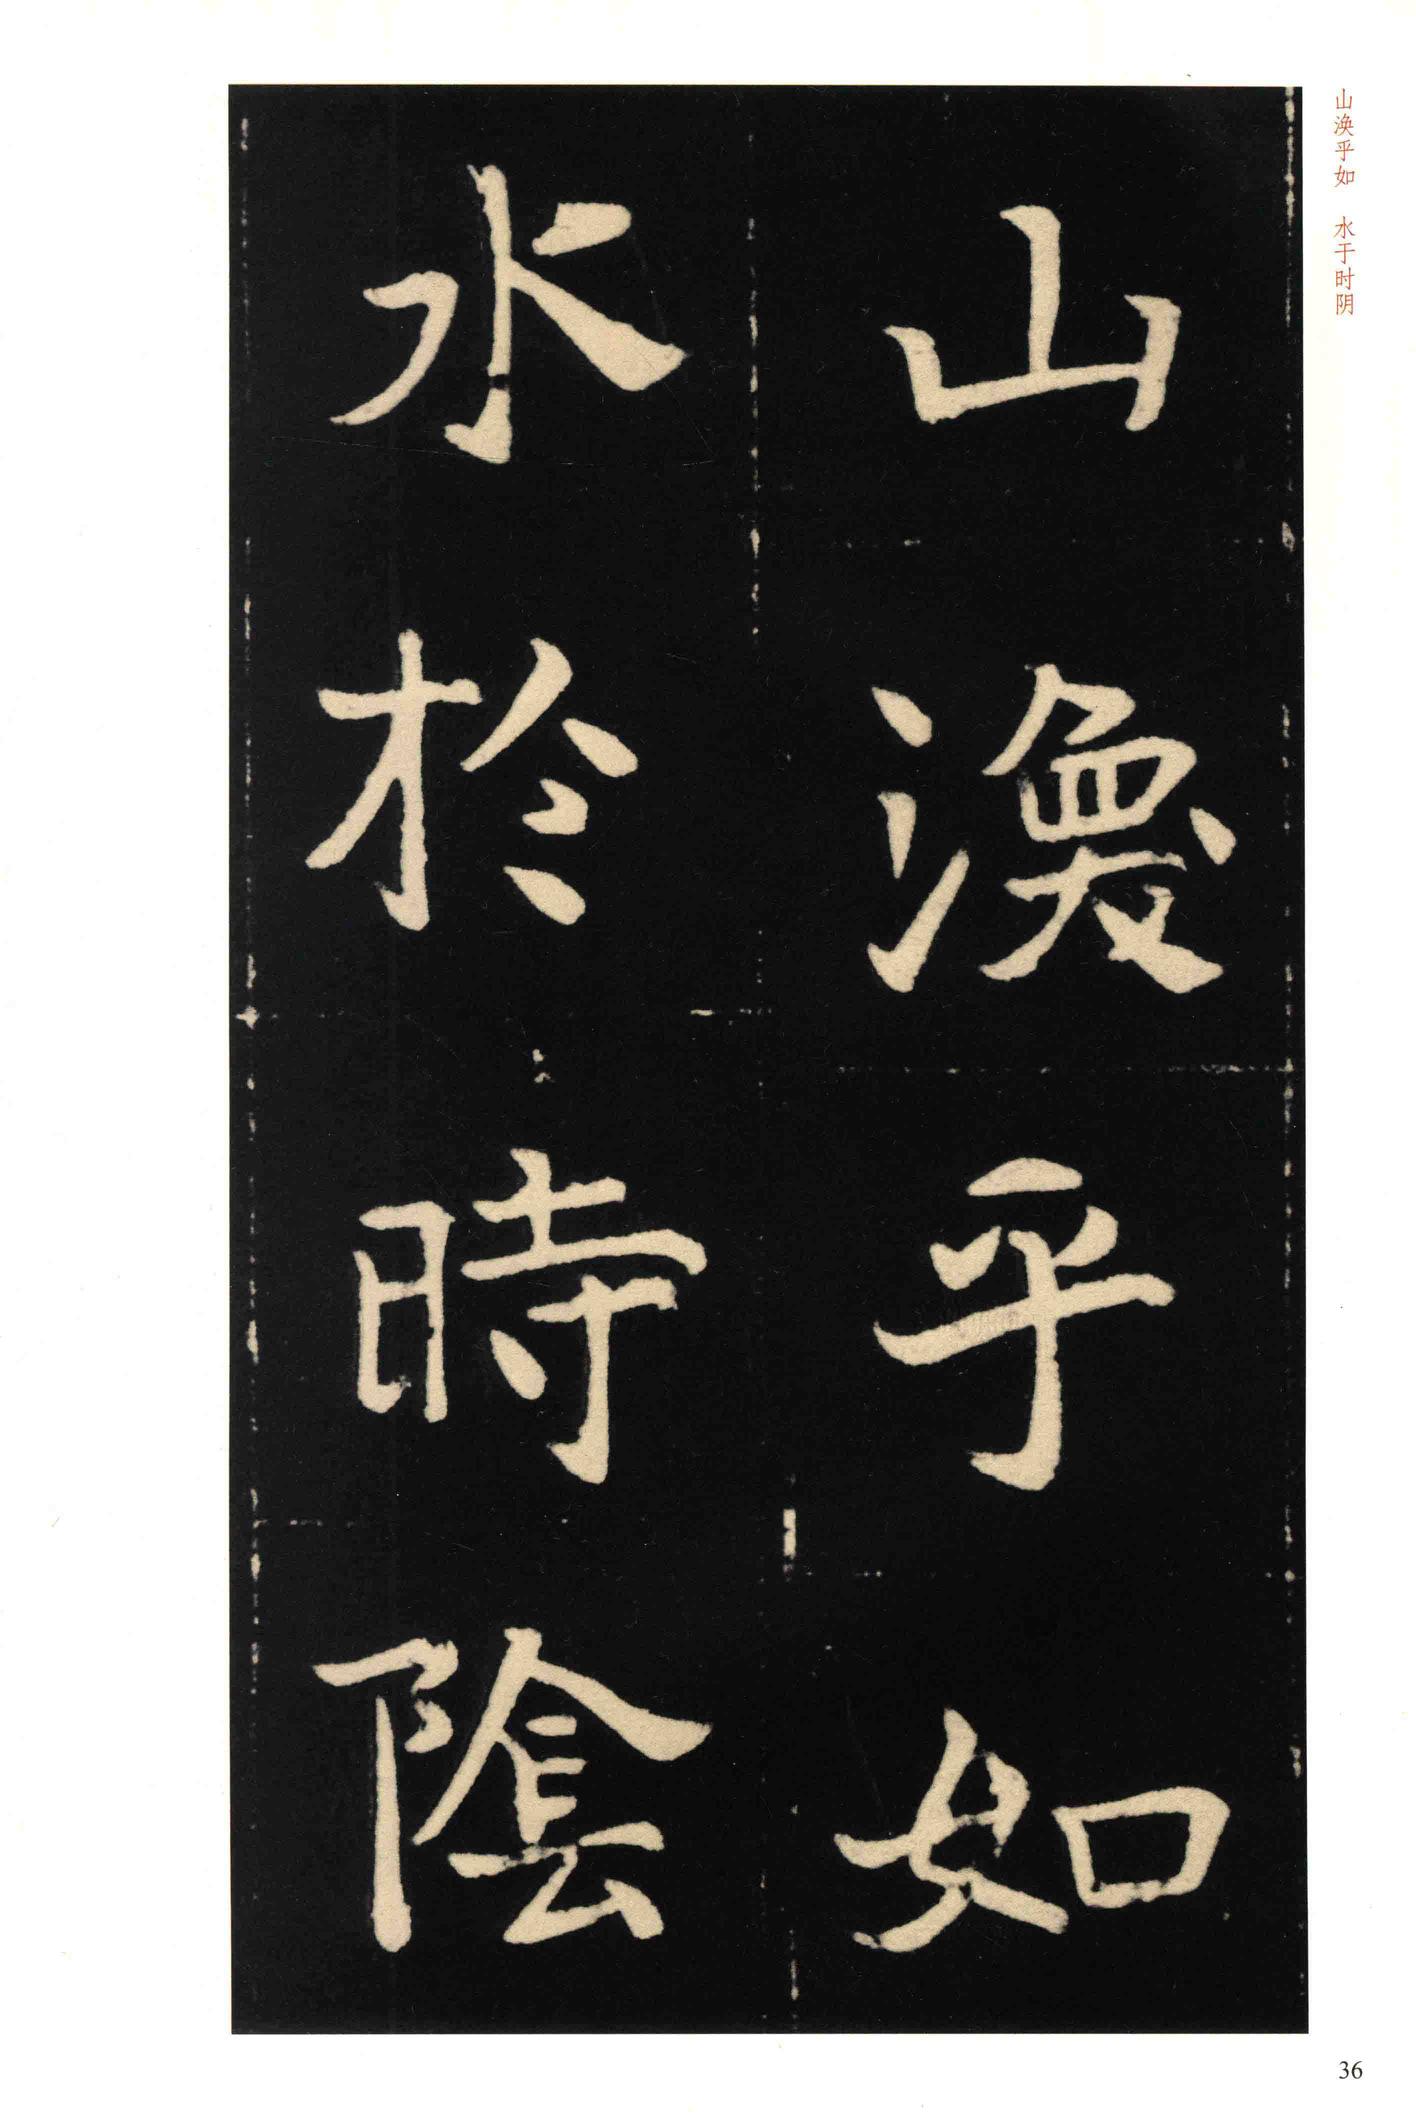 山渙乎如
水於時陰
山涣乎如　水于时阴
36